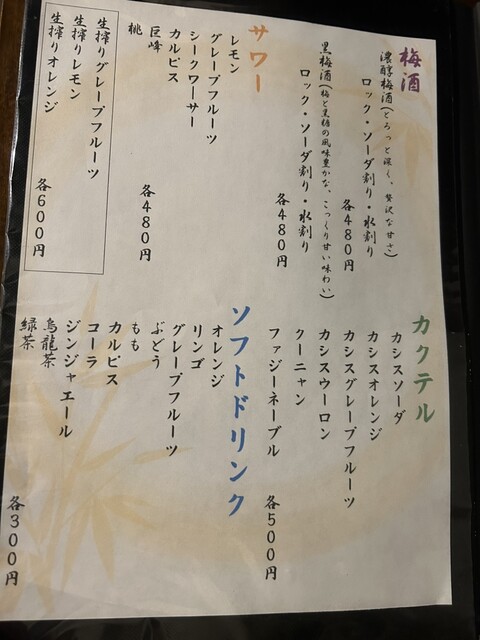 梅酒
濃醇梅酒(とろっと深く、贅沢な甘さ)
ロック・ソーダ割り・水割り
各480円
黒梅酒(梅と黒糖の風味豊かな、こっくり甘い味わい)
ロック・ソーダ割り・水割り
各480円
サワー
レモン
グレープフルーツ
シークワーサー
カルピス
巨峰
桃
各480円
生搾りグレープフルーツ
生搾りレモン
生搾りオレンジ
各600円
カクテル
カシスソーダ
カシスオレンジ
カシスグレープフルーツ
カシスウーロン
クーニャン
ファジーネーブル
各500円
ソフトドリンク
オレンジ
リンゴ
グレープフルーツ
ぶどう
もも
カルピス
コーラ
ジンジャエール
烏龍茶
緑茶
各300円